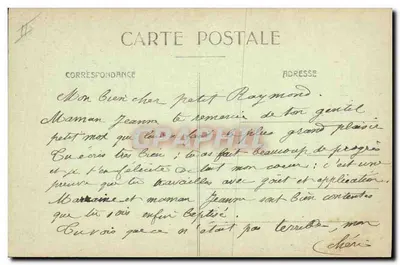 CARTE POSTALE
CORRESPONDANCE
ADRESSE
Mon bien cher petit Raymond.
Maman Jeanne te remercie de ton gentil
petit mot qui lui a fait le plus grand plaisir
Tu écris très bien ; tu as fait beaucoup de progrès
et je t'en félicite de tout mon cœur ; c'est une
preuve que tu travailles avec goût et application.
Marraine et maman Jeanne sont bien contentes
que tu sois enfin baptisé.
Tu vois que ce n'était pas terrible, mon
Chéri